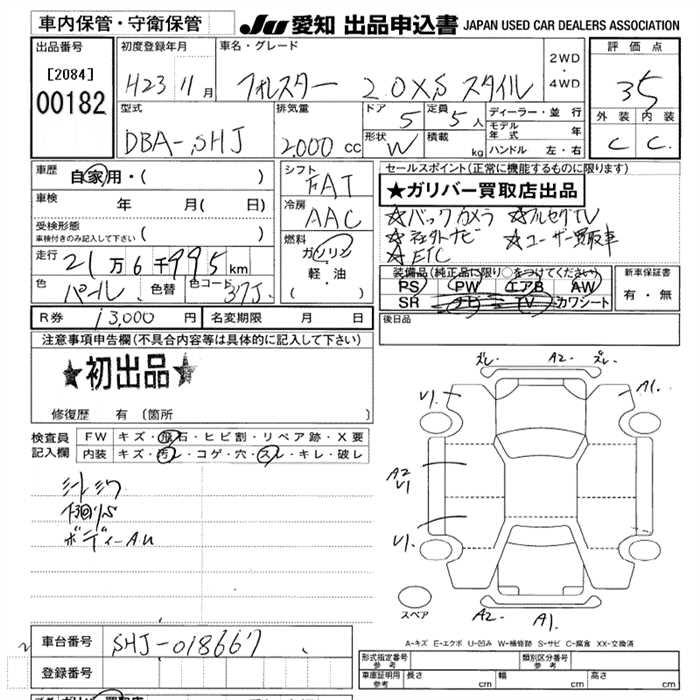 車内保管・守衛保管
JU 愛知 出品申込書 JAPAN USED CAR DEALERS ASSOCIATION
出品番号
[2084]
00182
初度登録年月
H23 11月
車名・グレード
フォレスター 2.0XS スタイル
2WD
・
4WD
評価点
3.5
外装 内装
C C
型式
DBA-SHJ
排気量
2000 cc
ドア 5
定員 5 人
形状 W
積載 kg
ディーラー・並行
モデル年式 年
ハンドル 左・右
車歴
自家用・( )
車検 年 月( 日)
受検形態
車検付きのみ記入して下さい ( )
走行 21万6千995km
色 パール
色替
色コード 37J
シフト
FAT
冷房
AAC
燃料
ガソリン
軽・油
( )
セールスポイント(正常に機能するものに限ります)
★ガリバー買取店出品
☆バックカメラ ☆フルセグTV
☆社外ナビ ☆ユーザー買取車
☆ETC
装備品(純正品に限り○をつけてください)
PS PW エアB AW
SR ナビ TV カワシート
新車保証書
有・無
R券 13,000円
名変期限 月 日
後日品
注意事項申告欄(不具合内容等は具体的に記入して下さい)
★初出品★
修復歴 有 〔箇所 〕
検査員
記入欄
FW キズ・飛石・ヒビ割・リペア跡・X要
内装 キズ・汚レ・コゲ・穴・スレ・キレ・破レ
シートシワ
ボディーAU
ズレ A2 ズレ
U1 A1
A2
U1
U1
A2 A1
スペア
A-キズ E-エクボ U-凹み W-補修跡 S-サビ C-腐食 XX-交換済
車台番号 SHJ-018667
登録番号
形式指定番号
参考
類別区分番号
参考
車庫証明用
参考
長さ cm
幅 cm
高さ cm
ガリバー買取店